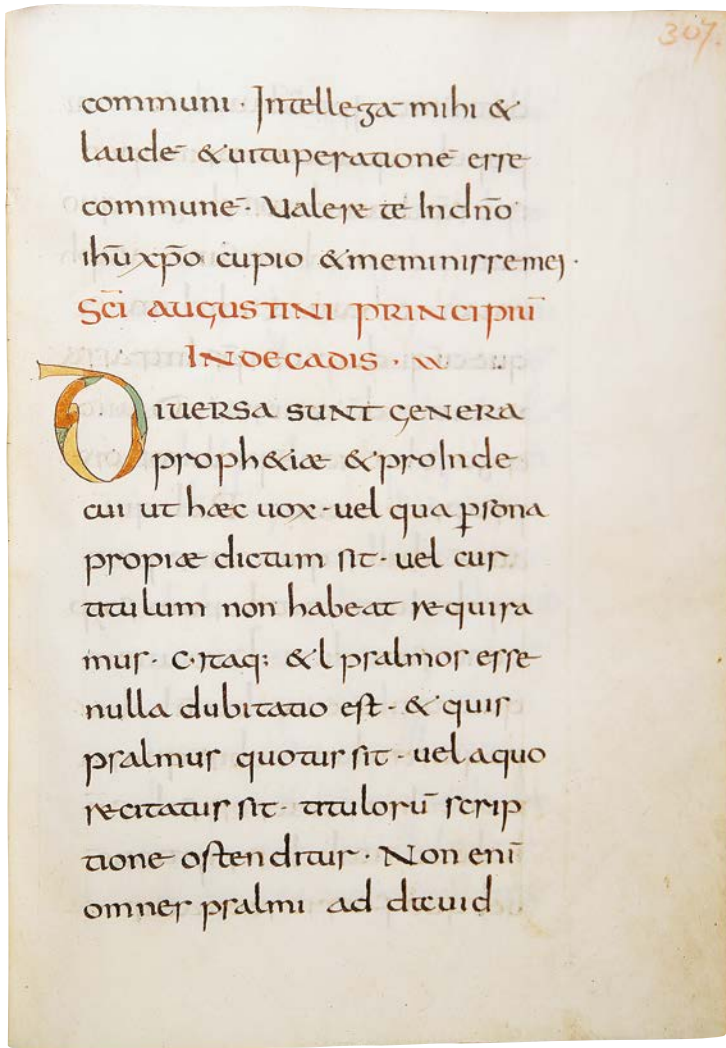 307.
communi · Intellega mihi &
laudē & uituperationē esse
communē · Ualere te In dn̄o
ihū xp̄o cupio & meminisse mei ·
Sc̄i AUGUSTINI PRINCIPIŪ
IN DECADIS ·
DIUERSA SUNT GENERA
proph&iæ & proInde
cui ut hæc uox · uel qua ꝑsona
propiæ dictum sit · uel cur
titulum non habeat requira
mus · C · Itaq; & l psalmos esse
nulla dubitatio est · & quis
psalmus quotus sit · uel a quo
recitatus sit · titulorū scrip
tione ostenditur · Non eni̅
omnes psalmi ad dauid